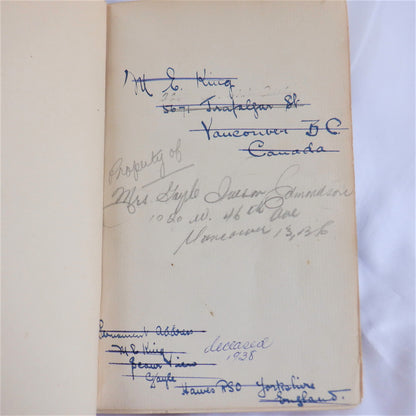 M E King
5691 Trafalgar St.
Vancouver B C.
Canada
Property of
Mrs Gayle Iveson Edmondson
1020 W. 46th Ave
Vancouver 13, B C
Permanent Address
M E King
Beaux View
Gayle
Hawes RSO Yorkshire
England.
deceased
1938